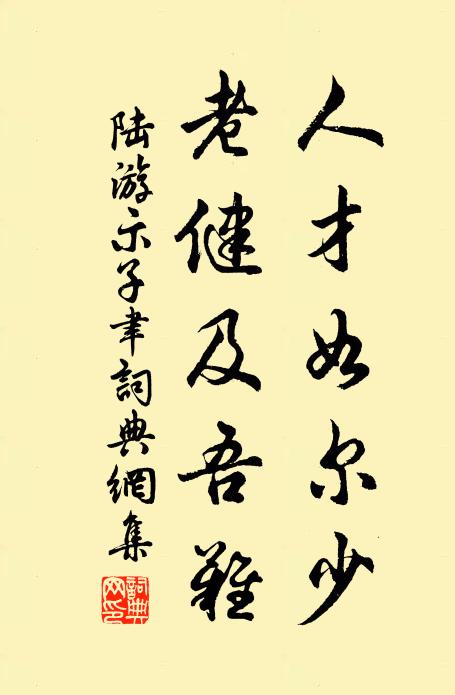 人才如尔少
老健及吾難
陆游示子聿詞典網集
詞典网印